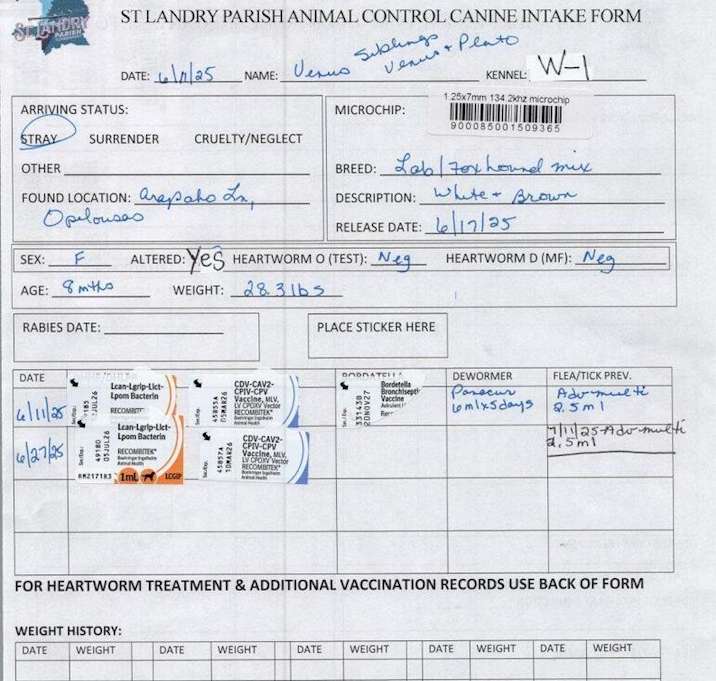 ST. LANDRY
PARISH
ST LANDRY PARISH ANIMAL CONTROL CANINE INTAKE FORM
Siblings
Venus + Pluto
DATE: 6/11/25 NAME: Venus KENNEL: W-1
ARRIVING STATUS:
STRAY SURRENDER CRUELTY/NEGLECT
OTHER
FOUND LOCATION: Arapaho Ln,
Opelousas
MICROCHIP:
1.25x7mm 134.2khz microchip
900085001509365
BREED: Lab/Foxhound mix
DESCRIPTION: White + Brown
RELEASE DATE: 6/17/25
SEX: F ALTERED: Yes HEARTWORM O (TEST): Neg HEARTWORM D (MF): Neg
AGE: 8 mths WEIGHT: 28.3 lbs
RABIES DATE:
PLACE STICKER HERE
DATE BORDATELLA DEWORMER FLEA/TICK PREV.
6/11/25
Lcan-Lgrip-Lict-
Lpom Bacterin
RECOMBITEK
CDV-CAV2-
CPIV-CPV
Vaccine, MLV,
LV CPOXV Vector
RECOMBITEK®
Boehringer Ingelheim
Animal Health
Bordetella
Bronchisepti
Vaccine
331430
20NOV27
Panacur
6ml x 5 days
Advmulti
2.5ml
6/27/25
Lcan-Lgrip-Lict-
Lpom Bacterin
RECOMBITEK®
Boehringer Ingelheim
Animal Health
49180
05JUL26
1mL
LCGIP
CDV-CAV2-
CPIV-CPV
Vaccine, MLV,
LV CPOXV Vector
RECOMBITEK®
Boehringer Ingelheim
Animal Health
45857A
10MAR26
7/11/25 Advmulti
2.5ml
FOR HEARTWORM TREATMENT & ADDITIONAL VACCINATION RECORDS USE BACK OF FORM
WEIGHT HISTORY:
DATE WEIGHT DATE WEIGHT DATE WEIGHT DATE WEIGHT DATE WEIGHT